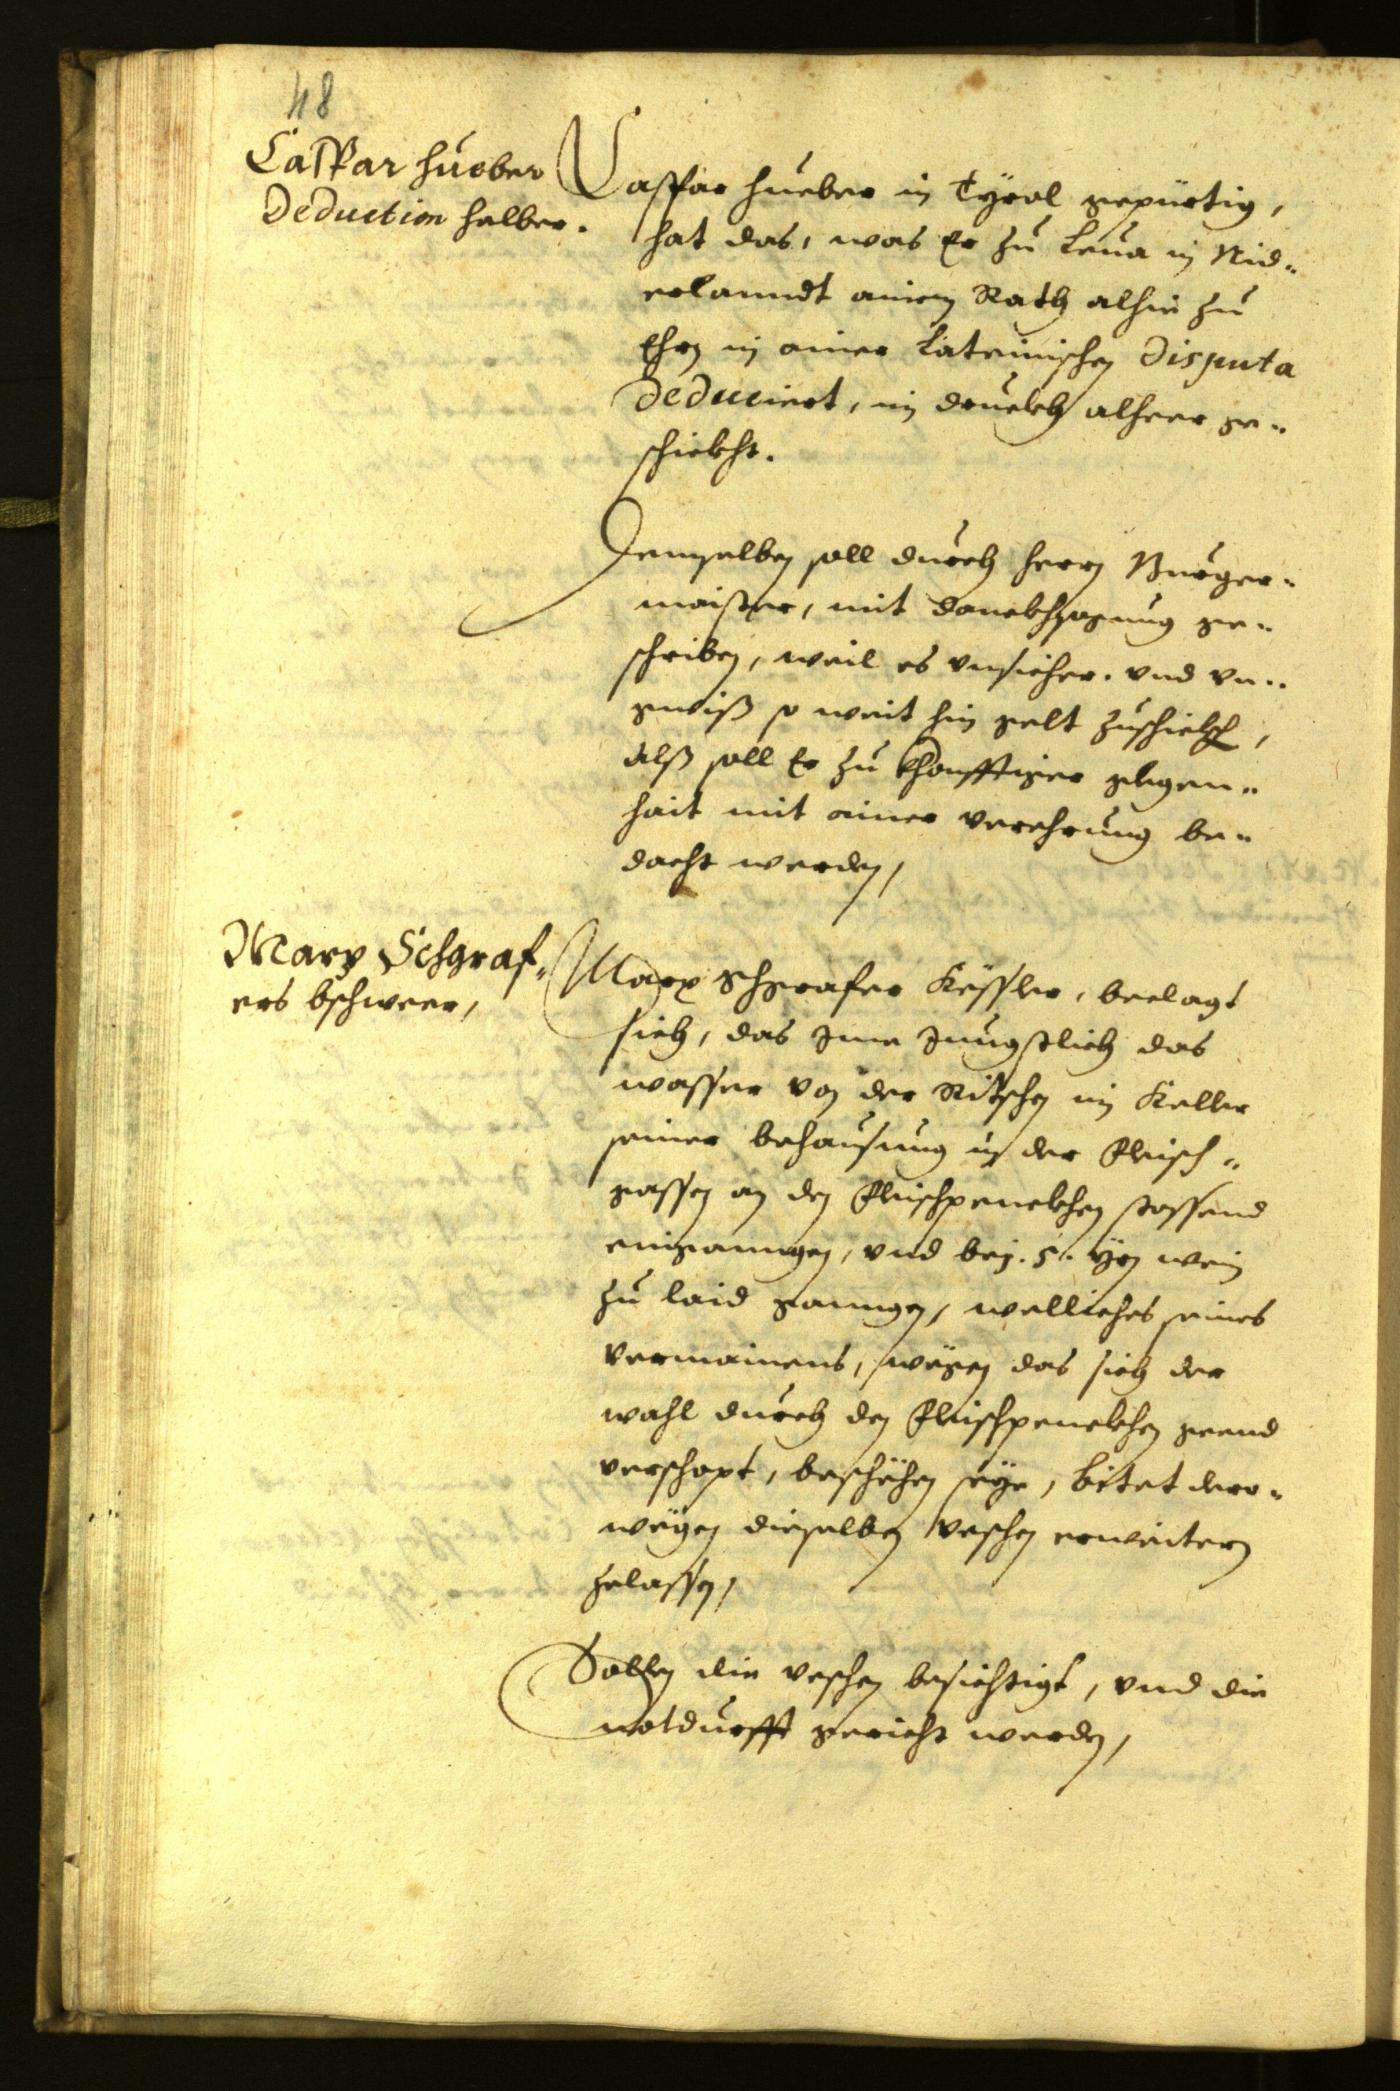 48
Casßar hueber
Deduction halber.
Casspar hueber in Tyrol gepürtig,
hat das, was Er zu Leua in Nid-
erlanndt ainem Rath alhie zu
Ehrn in ainer Lateinischen Disputa
Deduciert, in druckh alheer ge-
schickht.
Demselben soll durch herrn Burger-
maister, mit danckhsagung ge-
schriben, weil es vnsicher. vnd vn-
gwiß so weit hin gelt zuschickh,
alß soll Er zu khonfftiger glegen-
hait mit ainer verehrung be-
dacht werden,
Marx Schgraf-
ers bschweer,
Marx Schgrafer Kessler, beclagt
sich, das Ime Jungstlich das
wasser von der Ritschen in Keller
seiner behausung in der Fleisch-
gassen an den Fleischpenckhen stossend
eingangen, vnd bey .5. Yrn wein
zu laid gangen, welliches seines
vermainens, wegen das sich der
wahl durch den Fleischpenckhen geend
verschopt, beschehen seye, bitet dero-
wegen dieselben Veschen erweitern
zelassen,
Sollen die Veschen besichtigt, vnd die
notdurfft gericht werden,